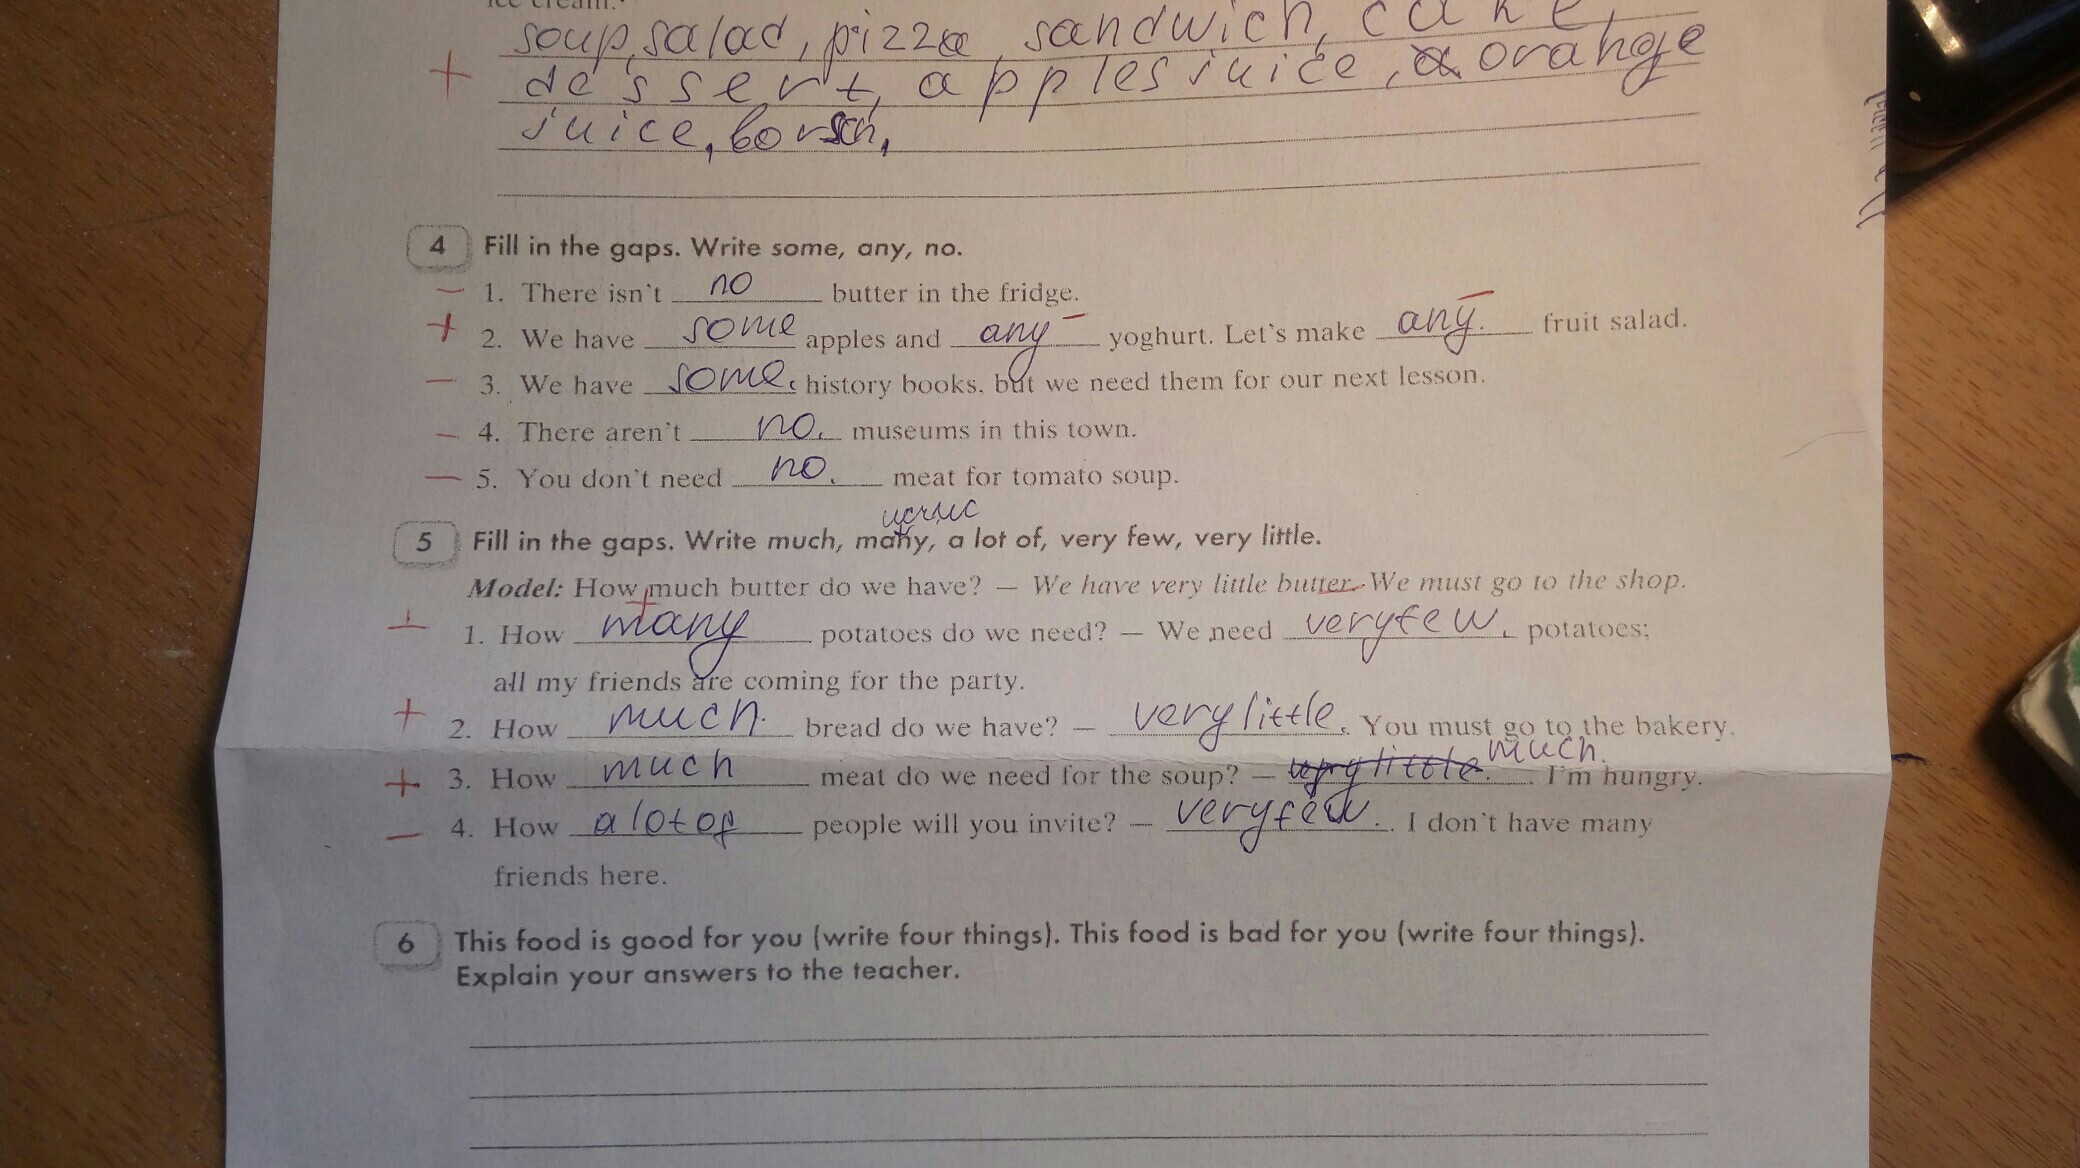 ice cream.
soup, salad, pizza, sandwich, cake,
dessert, apples juice, orange
juice, borsch,
4 Fill in the gaps. Write some, any, no.
− 1. There isn't no butter in the fridge.
+ 2. We have some apples and any − yoghurt. Let's make any. − fruit salad.
− 3. We have some. history books, but we need them for our next lesson.
− 4. There aren't no. museums in this town.
− 5. You don't need no. meat for tomato soup.
5 Fill in the gaps. Write much, many, a lot of, very few, very little.
Model: How much butter do we have? — We have very little butter. We must go to the shop.
1. How many potatoes do we need? — We need very few. potatoes;
all my friends are coming for the party.
+ 2. How much. bread do we have? — very little. You must go to the bakery.
much.
+ 3. How much meat do we need for the soup? — very little. I'm hungry.
− 4. How a lot of people will you invite? — very few. . I don't have many
friends here.
6 This food is good for you (write four things). This food is bad for you (write four things).
Explain your answers to the teacher.